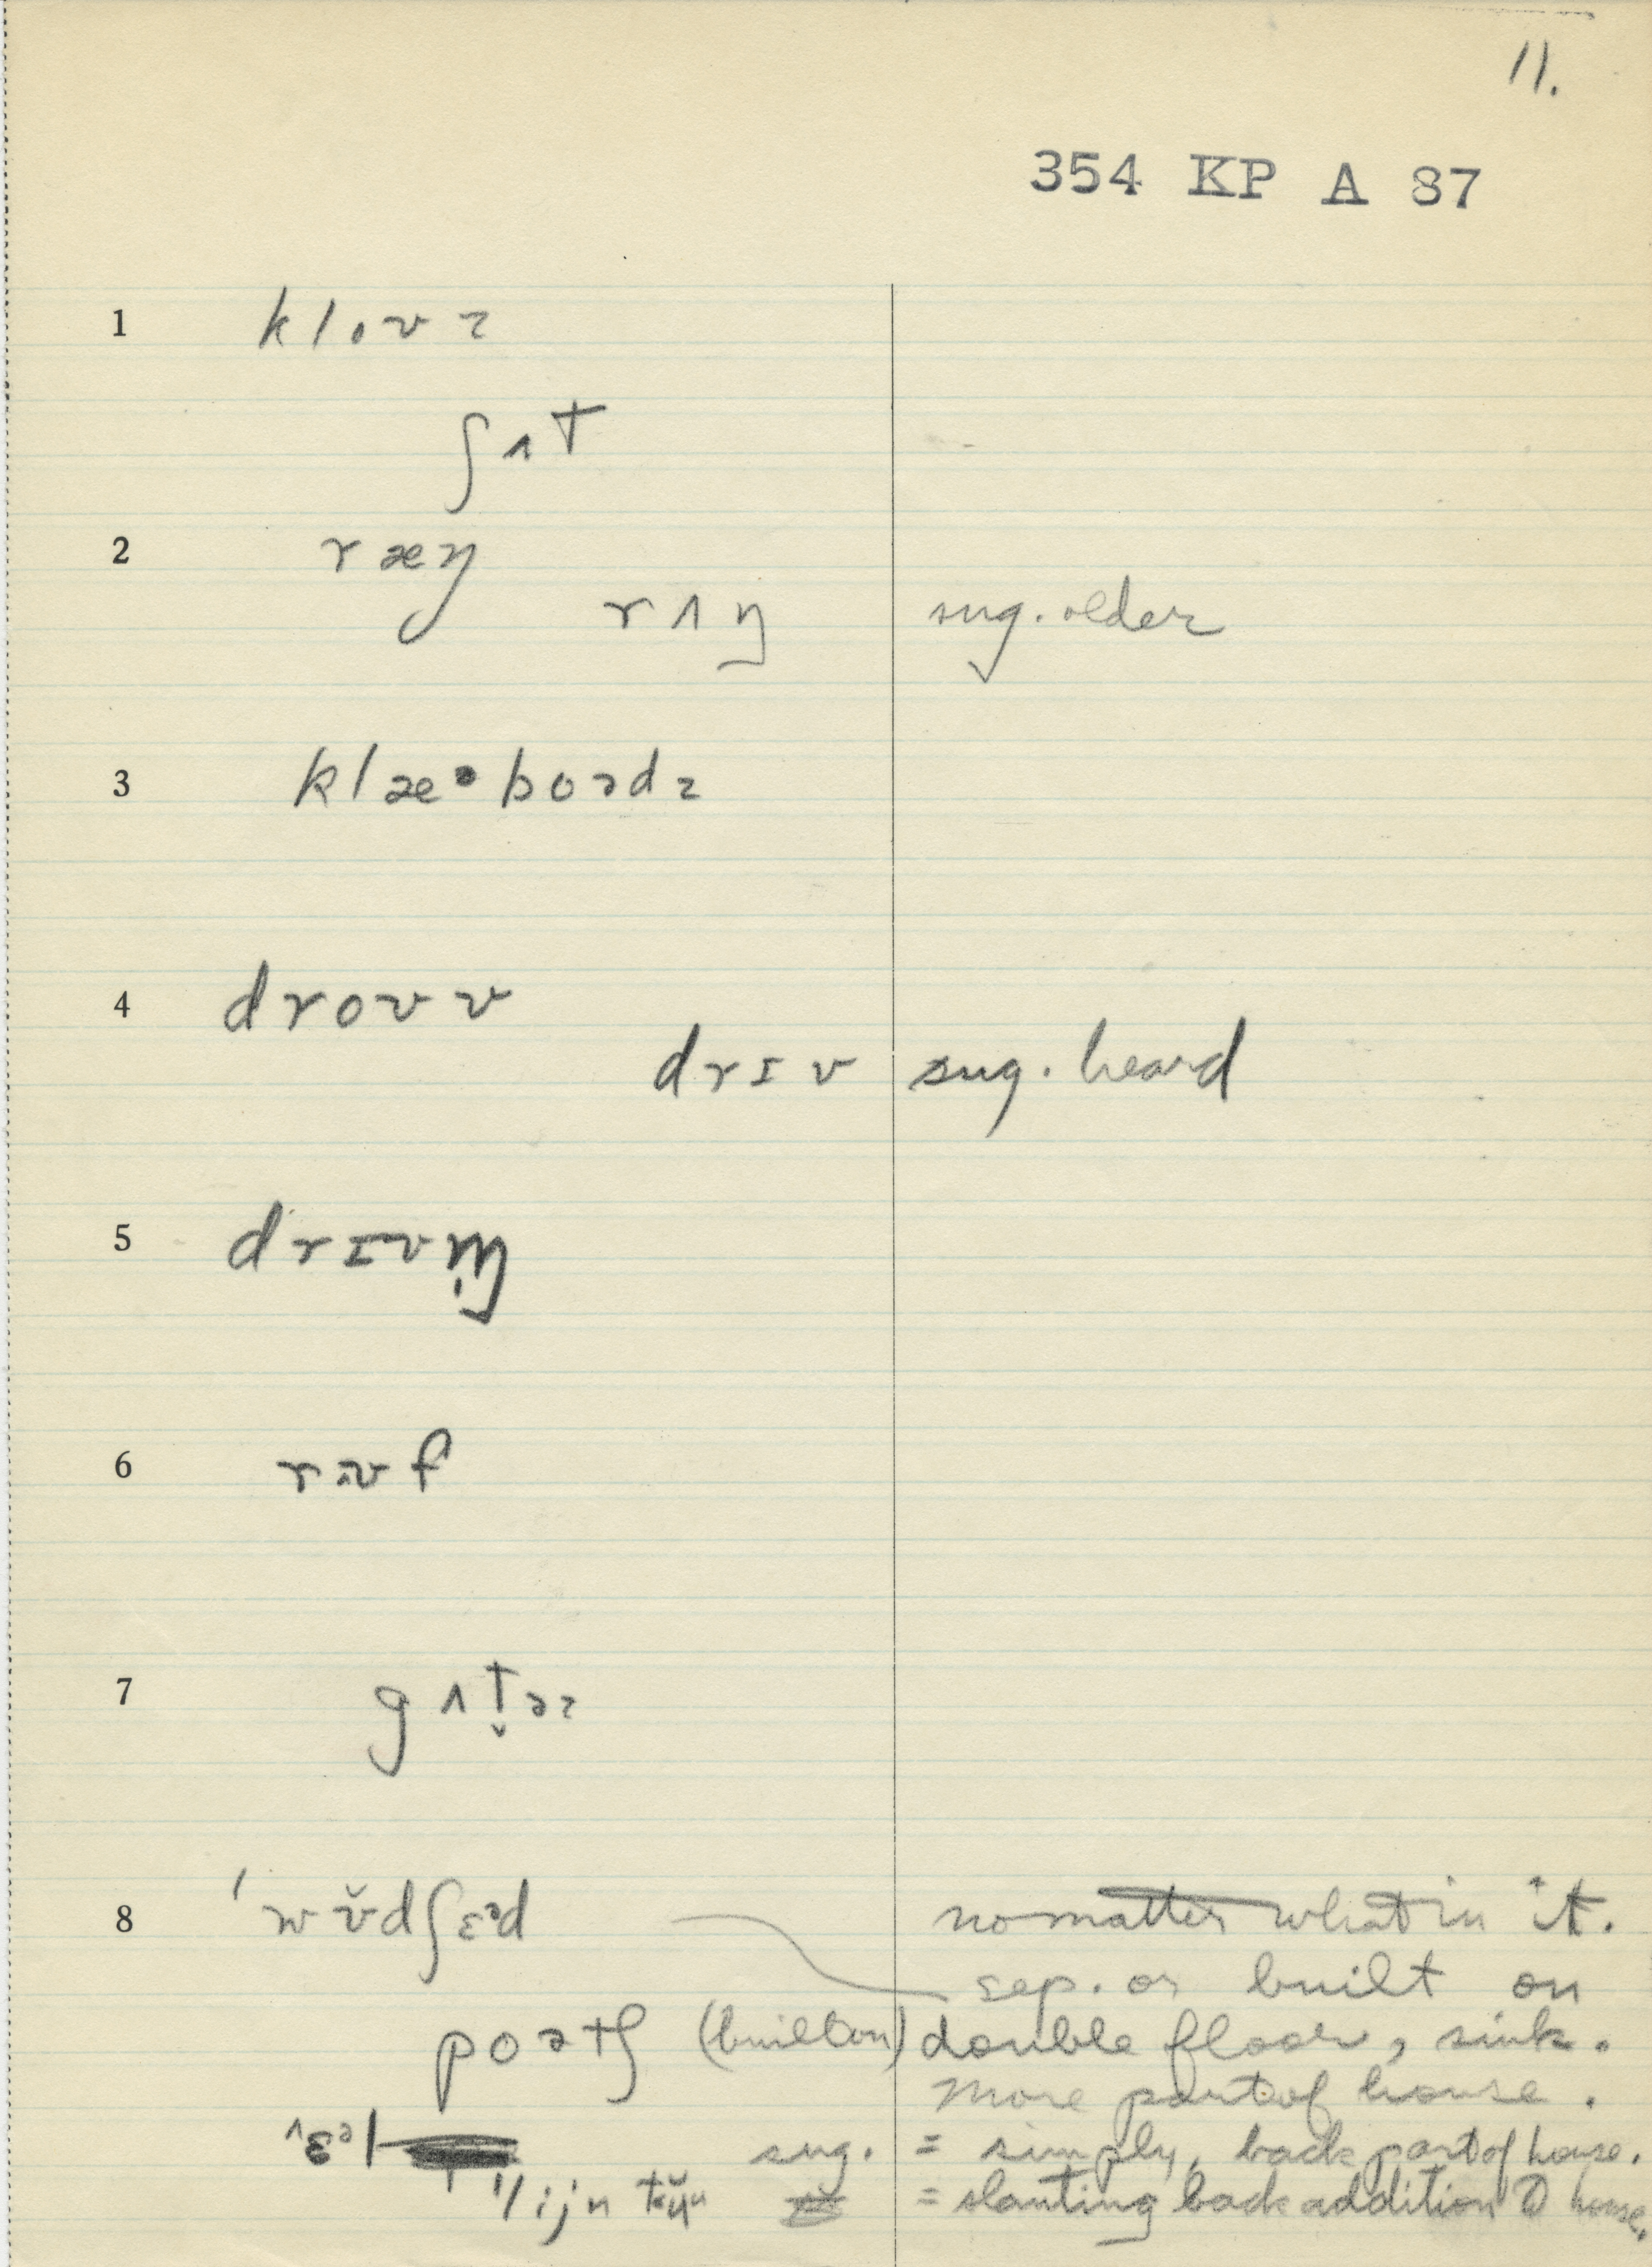 11.
354 KP A 87
1 kloʊz
ʃʌt
2 ræŋ
rʌŋ sug. older
3 klæᵊboədz
4 droʊv
drɪv sug. heard
5 drɪvm̩
6 rʊf
7 gʌt̬əz
8 ˈwʊ̆dʃɛᵊd no matter what in it.
sep. or built on
poətʃ (built on) double floor, sink.
More part of house.
ɛᵊl sug. = simply, back part of house.
= slanting back addition to house.